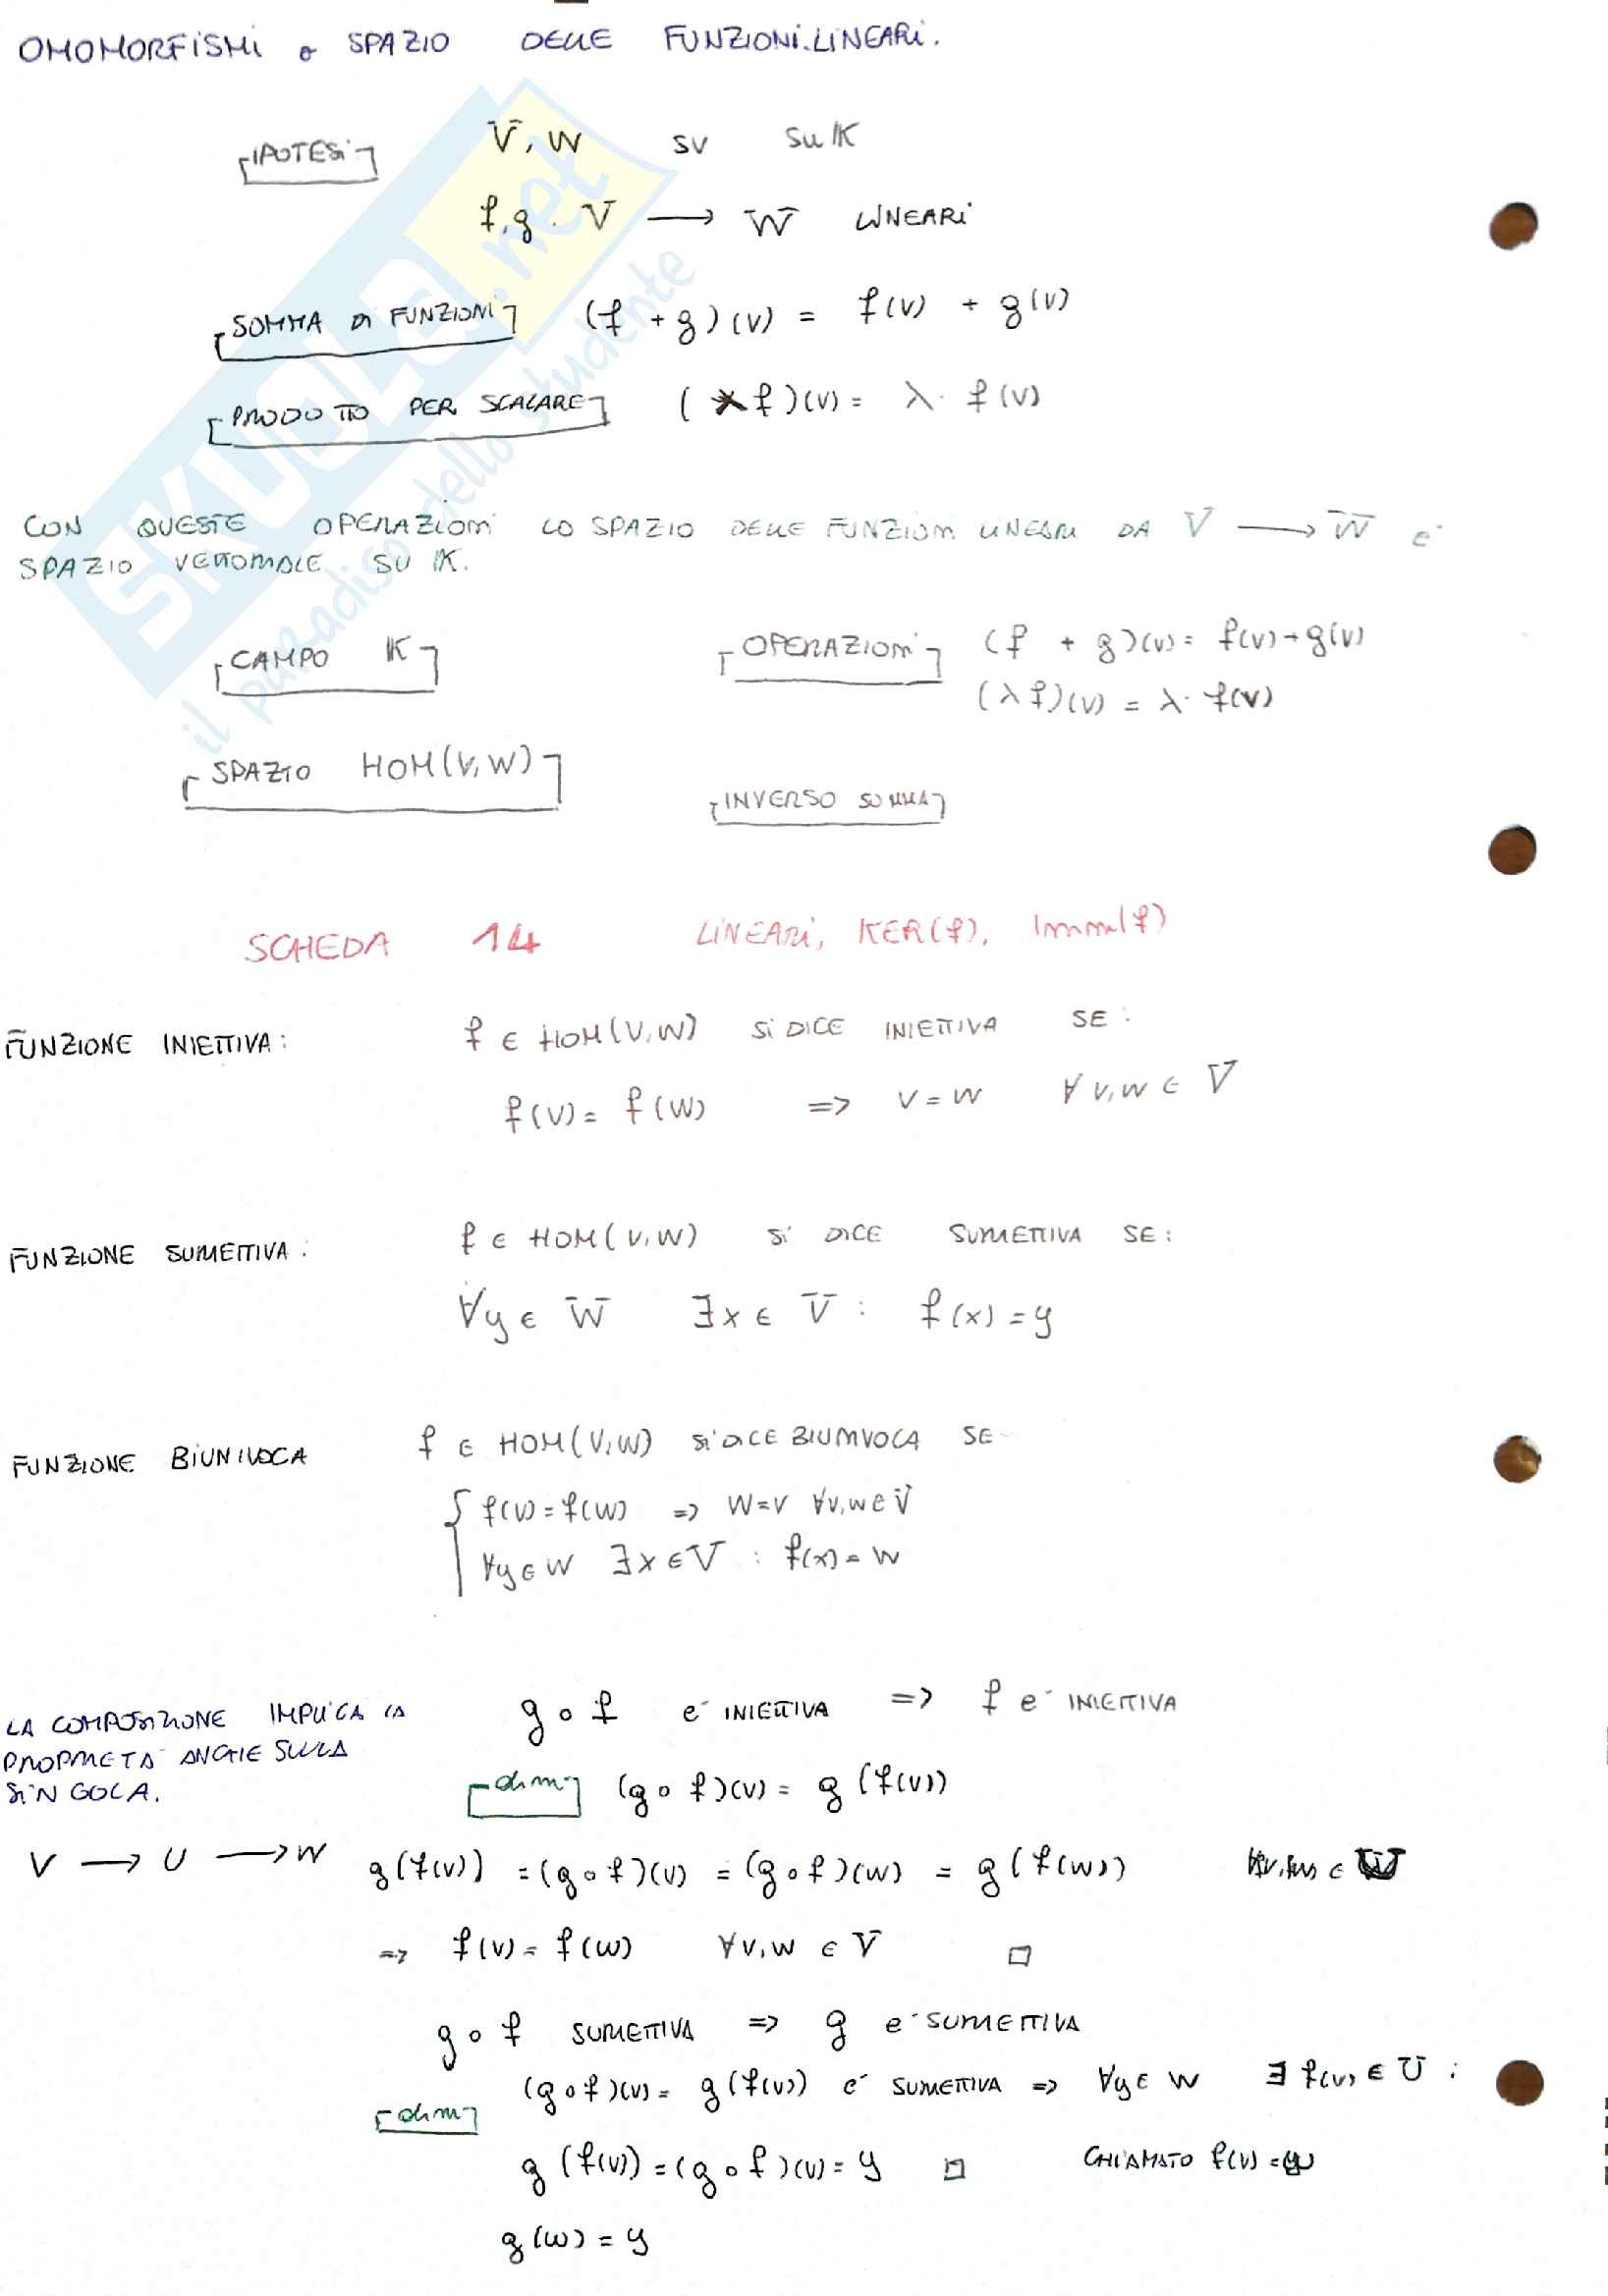 OMOMORFISMI o SPAZIO DELLE FUNZIONI LINEARI.
IPOTESI V, W SV SU IK
f, g : V → W LINEARI
SOMMA DI FUNZIONI (f + g)(v) = f(v) + g(v)
PRODOTTO PER SCALARE (λf)(v) = λ · f(v)
CON QUESTE OPERAZIONI LO SPAZIO DELLE FUNZIONI LINEARI DA V → W e'
SPAZIO VETTORIALE SU IK.
CAMPO IK OPERAZIONI (f + g)(v) = f(v) + g(v)
(λf)(v) = λ · f(v)
SPAZIO HOM(V,W)
INVERSO SOMMA
SCHEDA 14 LINEARI, KER(f), Imm(f)
FUNZIONE INIETTIVA: f ∈ HOM(V,W) SI DICE INIETTIVA SE:
f(v) = f(w) => v = w ∀ v,w ∈ V
FUNZIONE SURIETTIVA: f ∈ HOM(V,W) SI DICE SURIETTIVA SE:
∀y ∈ W ∃x ∈ V : f(x) = y
FUNZIONE BIUNIVOCA f ∈ HOM(V,W) SI DICE BIUNIVOCA SE
{ f(v) = f(w) => w = v ∀v,w ∈ V
∀y ∈ W ∃x ∈ V : f(x) = w
LA COMPOSIZIONE IMPLICA LA
PROPRIETA' ANCHE SULLA
SINGOLA.
g o f e' INIETTIVA => f e' INIETTIVA
dim (g o f)(v) = g(f(v))
V → U → W g(f(v)) = (g o f)(v) = (g o f)(w) = g(f(w))
=> f(v) = f(w) ∀v,w ∈ V □
g o f SURIETTIVA => g e' SURIETTIVA
dim (g o f)(v) = g(f(v)) e' SURIETTIVA => ∀y ∈ W ∃ f(v) ∈ U :
g(f(v)) = (g o f)(v) = y □ CHIAMATO f(v) = w
g(w) = y
SKUOLA.net
il paradiso dello studente